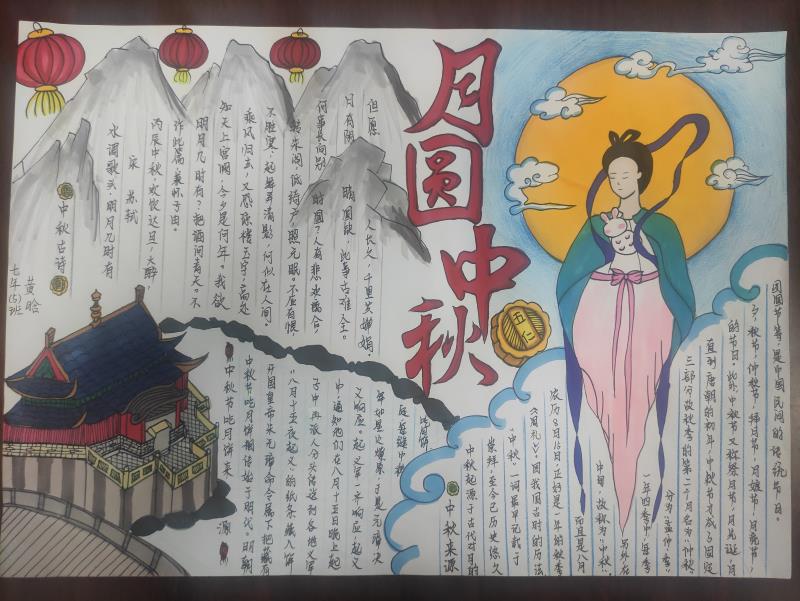 月圆中秋
五仁
七年(5)班
黄晗
中秋古诗
水调歌头·明月几时有
宋 苏轼
丙辰中秋,欢饮达旦,大醉,
作此篇,兼怀子由。
明月几时有?把酒问青天。不
知天上宫阙,今夕是何年。我欲
乘风归去,又恐琼楼玉宇,高处
不胜寒。起舞弄清影,何似在人间。
转朱阁,低绮户,照无眠。不应有恨,
何事长向别时圆?人有悲欢离合,
月有阴晴圆缺,此事古难全。
但愿人长久,千里共婵娟。
中秋节吃月饼来源
中秋节吃月饼相传始于明代。明朝
开国皇帝朱元璋命令属下把藏有
“八月十五夜起义”的纸条藏入饼
子中再派人分头传送到各地义军
中,通知他们在八月十五日晚上起
义响应。起义军齐响应,起义
军如星火燎原,于是元璋决
定每逢中秋
吃月饼
中秋来源
中秋起源于古代对月的
崇拜,至今已历史悠久
“中秋”一词最早见载于
《周礼》。因我国古时的历法
农历8月15日,正好是一年的秋季
而且是八月
中间,故称为“中秋”。
另外在
一年四季中,每季
分为,孟仲季
三部分故秋季的第二个月名为仲秋,
直到唐朝的初年,中秋节才成了固定
的节日。此外,中秋节又称祭月节,月光诞,月
夕,秋节,仲秋节,拜月节,月娘节,月亮节,
团圆节等,是中国民间的传统节日。